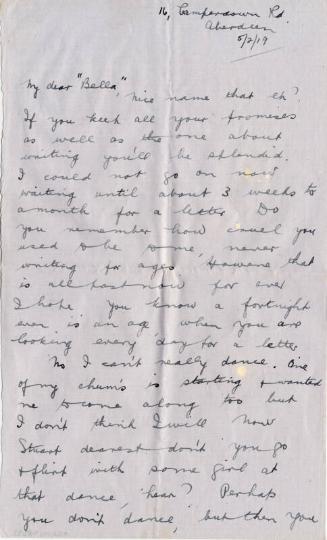 16, Camperdown Rd.
Aberdeen
5/2/19
My dear "Bella",
Nice name that eh?
If you keep all your promises
as well as the one about
writing you'll be splendid.
I could not go on now
waiting until about 3 weeks to
a month for a letter. Do
you remember how cruel you
used to be to me, never
writing for ages. However that
is all past now for ever
I hope. You know a fortnight
even is an age when you are
looking every day for a letter.
No I can't really dance. One
of my chums is starting & wanted
me to come along too but
I don't think I will. Now
Stuart dearest don't you go
& flirt with some girl at
that dance, hear? Perhaps
you don't dance, but then you